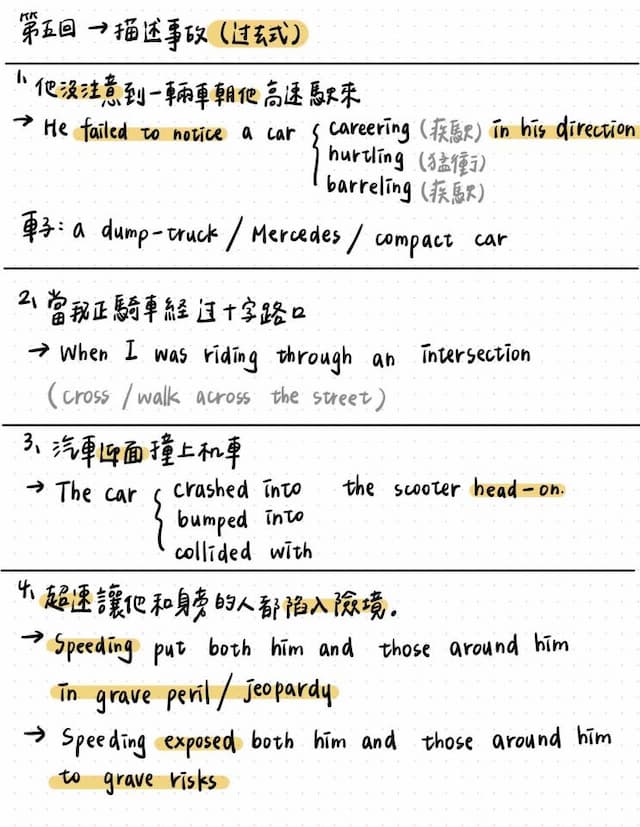 第五回 → 描述事故 (过去式)
1、他沒注意到一輛車朝他高速駛來
→ He failed to notice a car { careering (疾駛) in his direction
hurtling (猛衝)
barreling (疾駛)
車子: a dump-truck / Mercedes / compact car
2、當我正騎車経过十字路口
→ When I was riding through an intersection
(cross / walk across the street)
3、汽車迎面撞上机車
→ The car { crashed into the scooter head-on.
bumped into
collided with
4、超速讓他和身旁的人都陷入險境。
→ Speeding put both him and those around him
in grave peril / jeopardy
→ Speeding exposed both him and those around him
to grave risks